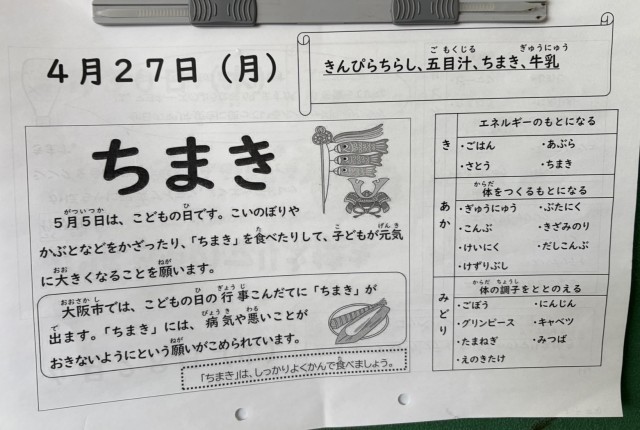 4月27日(月)
きんぴらちらし、五目汁、ちまき、牛乳
ちまき
5月5日は、こどもの日です。こいのぼりや
かぶとなどをかざったり、「ちまき」を食べたりして、子どもが元気
に大きくなることを願います。
大阪市では、こどもの日の行事こんだてに「ちまき」が
出ます。「ちまき」には、病気や悪いことが
おきないようにという願いがこめられています。
「ちまき」は、しっかりよくかんで食べましょう。
き
エネルギーのもとになる
・ごはん ・あぶら
・さとう ・ちまき
あか
体をつくるもとになる
・ぎゅうにゅう ・ぶたにく
・こんぶ ・きざみのり
・けいにく ・だしこんぶ
・けずりぶし
みどり
体の調子をととのえる
・ごぼう ・にんじん
・グリンピース ・キャベツ
・たまねぎ ・みつば
・えのきたけ